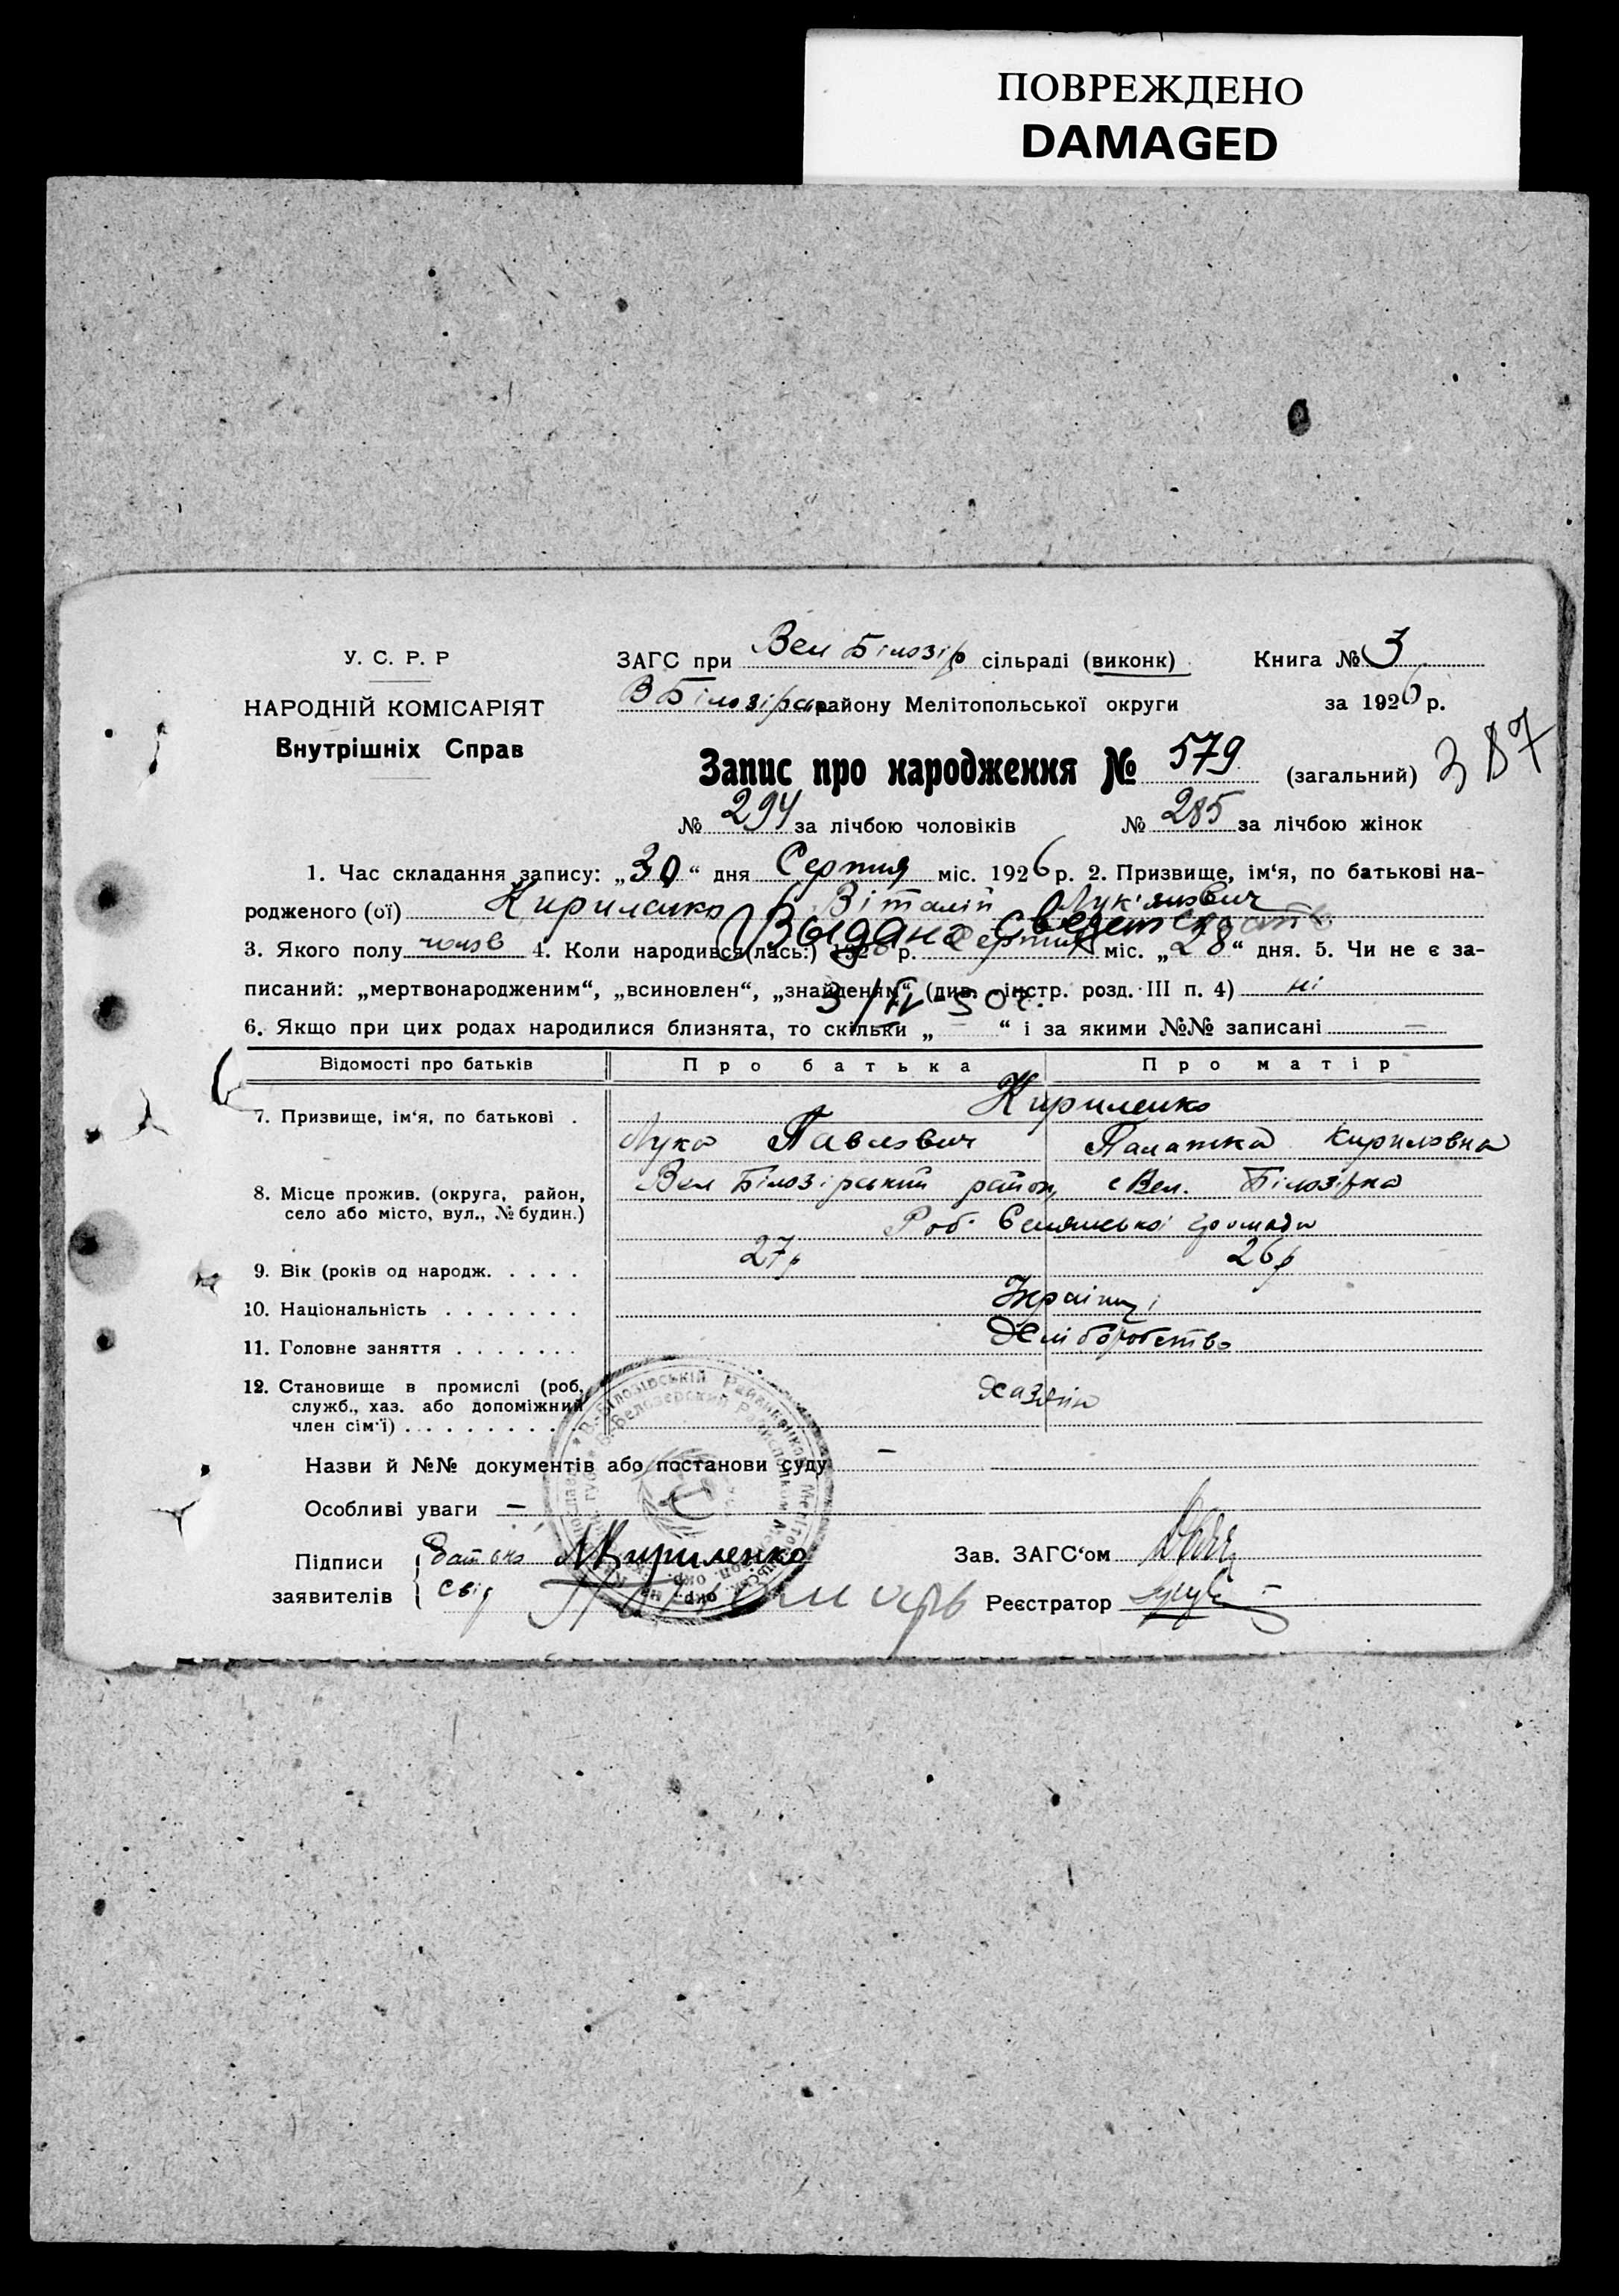 ПОВРЕЖДЕНО
DAMAGED
У. С. Р. Р
НАРОДНІЙ КОМІСАРІЯТ
Внутрішніх Справ
ЗАГС при Вел Білозір сільраді (виконк)
Книга № 3
В Білозірськ району Мелітопольської округи
за 1926 р.
Запис про народження № 579 (загальний) 387
№ 294 за лічбою чоловіків № 285 за лічбою жінок
1. Час складання запису: „30“ дня Серпня міс. 1926 р. 2. Призвище, ім‘я, по батькові на-
родженого (ої) Кириленко Віталій Лук'янович
Выдано свидет
3. Якого полу чолов 4. Коли народився(лась:) 1926 р. Серпня міс. „28“ дня. 5. Чи не є за-
писаний: „мертвонародженим“, „всиновлен“, „знайденям“ (див. інстр. розд. III п. 4) ні
3/IV-50 г.
6. Якщо при цих родах народилися близнята, то скільки „—“ і за якими №№ записані —
Відомості про батьків Про батька Про матір
7. Призвище, ім‘я, по батькові . Кириленко
Лука Павлович Палажка Кириловна
8. Місце прожив. (округа, район, село або місто, вул., № будин.) Вел Білозірський район, с Вел. Білозірка
громади
9. Вік (років од народж. . . . . 27 р 26 р
10. Національність . . . . . . . Українці
11. Головне заняття . . . . . . . Хліборобство
12. Становище в промислі (роб, служб., хаз. або допоміжний член сім‘ї) . . . . . . . . . Хазяїн
Назви й №№ документів або постанови суду —
Особливі уваги —
Підписи заявителів
батько Кириленко
свід
Зав. ЗАГС‘ом
Реєстратор